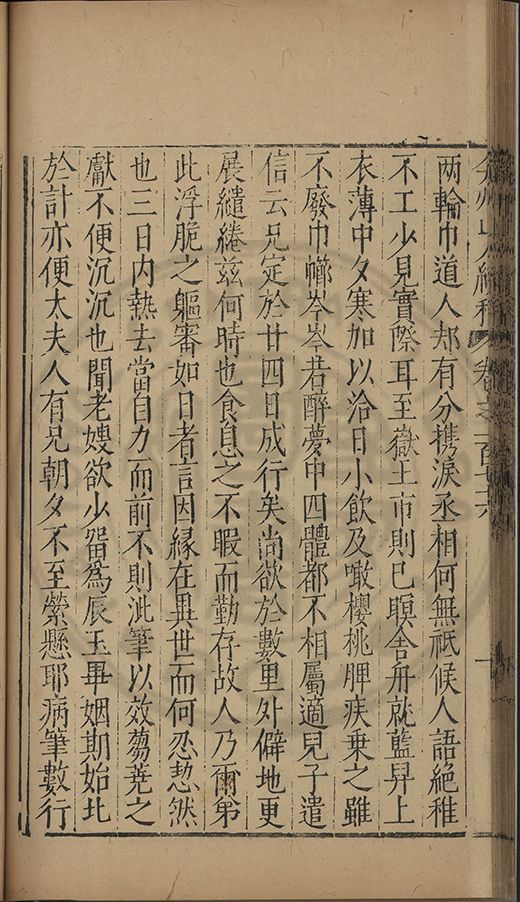 弇州山人續稿 卷之一百七十六
两輪巾道人却有分攜淚丞相何無祇候人語絶稚
不工少見實際耳至嶽上市則已暝舍舟就藍舁上
衣薄中夕寒加以洽日小飲及噉櫻桃脾疾乗之雖
不廢巾櫛岑岑若醉夢中四體都不相屬適兒子遣
信云兄定於廿四日成行矣尚欲於數里外僻地更
展繾綣兹何時也食息之不暇而勤存故人乃爾第
此浮脆之軀審如日者言因縁在異世而何忍恝然
也三日内熱去當自力而前不則泚筆以效芻蕘之
獻不便沉沉也聞老嫂欲少畱爲辰玉畢姻期始北
於計亦便太夫人有兄朝夕不至縈懸耶病筆數行